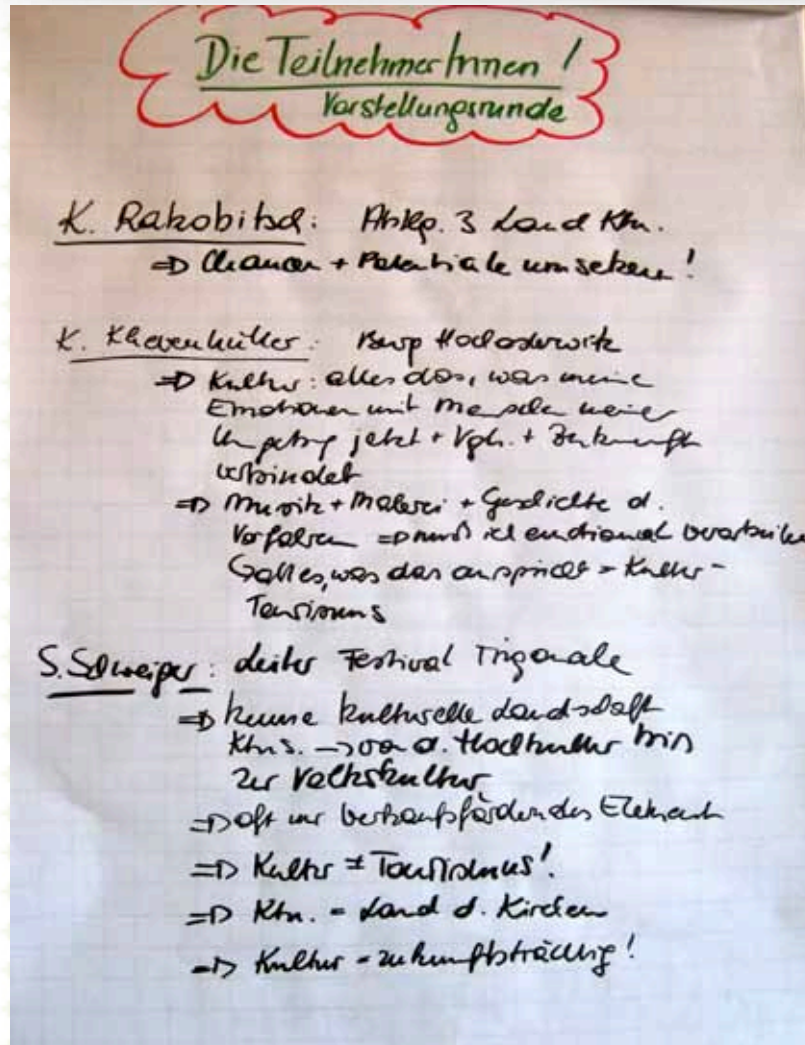 Die TeilnehmerInnen!
Vorstellungsrunde
K. Rakobitsch: Abtlg. 3 Land Ktn.
⇒ Chancen + Potentiale umsetzen!
K. Khevenhüller: Burg Hochosterwitz
⇒ Kultur: alles das, was meine
Emotionen mit Menschen meiner
Umgebung jetzt + Vgh. + Zukunft
verbindet
⇒ Musik + Malerei + Geschichte d.
Vorfahren ⇒ muß ich emotional verarbeiten
alles, was das anspricht = Kultur-
Tourismus
S. Schweiger: Leiter Festival Trigonale
⇒ kenne kulturelle Landschaft
Ktns. → von d. Hochkultur bis
zur Volkskultur
⇒ oft nur verkaufsförderndes Element
⇒ Kultur ≠ Tourismus!
⇒ Ktn. = Land d. Kirchen
⇒ Kultur = zukunftsträchtig!